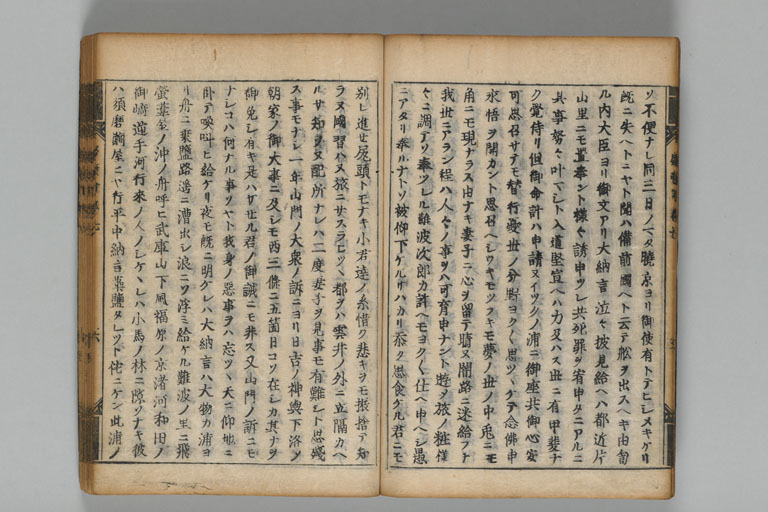 ツ不便ナレ同三日ノマタ曉京ヨリ御使有トテヒシメキケリ
既ニ失ヘトニヤト聞ハ備前國ヘト云テ舩ヲ出スヘキ由匂
ル内大臣ヨリ御文アリ大納言泣々披見給ヘハ都近片
山里ニモ置奉ント様々誘申ツレ共死罪ヲ宥申タニアルニ
其事努々叶マシト入道堅宣ヘハ力及ハス世ニ有甲斐ナ
ク覺侍リ但御命計ハ申請ヌイツクノ浦ニ御座共御心安
可思召サテモ替行憂世ノ分野ヨクヽ思ツヽケテ念佛申
求悟ヲ開カント思召ヘシウキモツラキモ夢ノ世ノ中兎ニモ
角ニモ現ナラス由ナキ妻子ニ心ヲ留テ晴ヌ闇路ニ迷給フナ
我世ニアラン程ハ人々ノ事ヲハ可育申ナント遊ヌ旅ノ粧様
々ニ調テソ奉ツレル難波次郎カ許ヘモヨクヽ仕ヘ申ヘシ愚
ニアタリ奉ルナトソ被仰下ケルサハカリ忝ク思食ケル君ニモ
別レ進セ尻頭トモナキ小君達ノ糸惜ク悲キヲモ振捨テ知
ラヌ國習ハヌ旅ニサスラヒツヽ都ヲハ雲井ノ外ニ立隔カヘ
ルサ知ラヌ配所ナレハ二度妻子ヲ見事モ有難シト思殘
ス事モナシ一年山門ノ大衆ノ訴ニヨリ日吉ノ神輿下洛ノ
朝家ノ御大事ニ及シモ西三條ニ五箇日コソ在シカ其ナヲ
御免シ有キ是ハサセル君ノ御誡ニモ非ス又山門ノ訴ニモ
ナレコハ何ナル事ソヤト我身ノ惡事ヲハ忘ツヽ天ニ仰地ニ
臥テ喚叫ヒ給ケリ夜モ既ニ明ケレハ大納言ハ大物カ浦ヨ
リ舟ニ乘鹽路遙ニ漕出シ浪ニソ浮ミ給ケル難波ノ里ニ飛
螢葦ノ沖ノ舟呼ヒ武庫山下風福原ノ京渚河和田ノ
御崎遠手河行來ノ人ノシケヽレハ小馬ノ林ニ隱ツナキ彼
ハ須磨關屋ニヤ行平中納言藻鹽タレツヽト佗ニケン此浦ノ